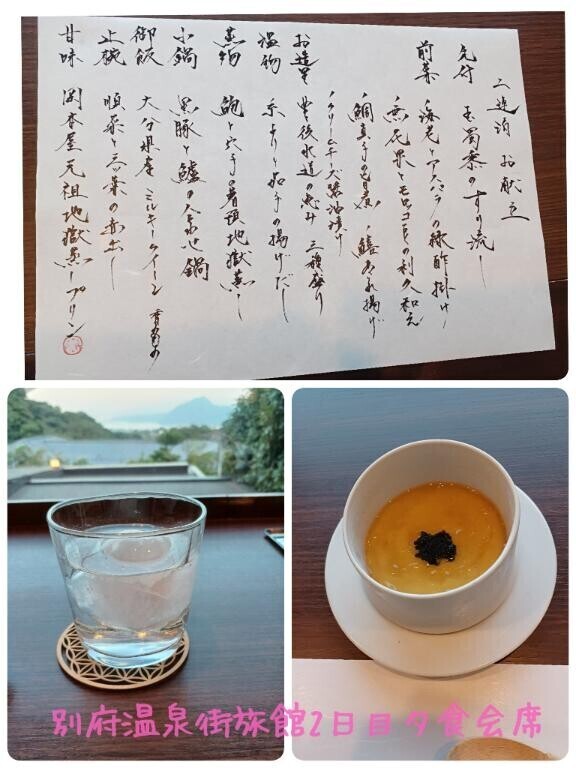 二連泊 お献立
先付 玉蜀黍のすり流し
前菜 海老とアスパラの緑酢掛け
無花果とモロッコ豆の利久和え
鯛真子旨煮 鱧あられ揚げ
クリームチーズ醤油漬け
お造里 豊後水道の恵み 三種盛り
温物 糸よりと茄子の揚げだし
蒸物 鮑と穴子の 地獄蒸し
小鍋 黒豚と鱧の合わせ鍋
御飯 大分県産ミルキークイーン 香の物
止椀 順才と三つ葉の赤出し
甘味 岡本屋元祖地獄蒸しプリン
別府温泉街旅館2日目夕食会席